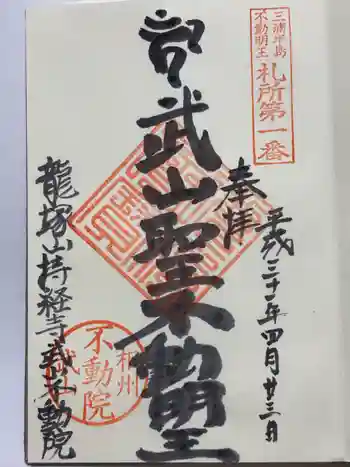 三浦半島
不動明王
札所第一番
奉拝
平成三十一年四月廿三日
武山聖不動明王
龍塚山持経寺武山不動院
相州
不動院